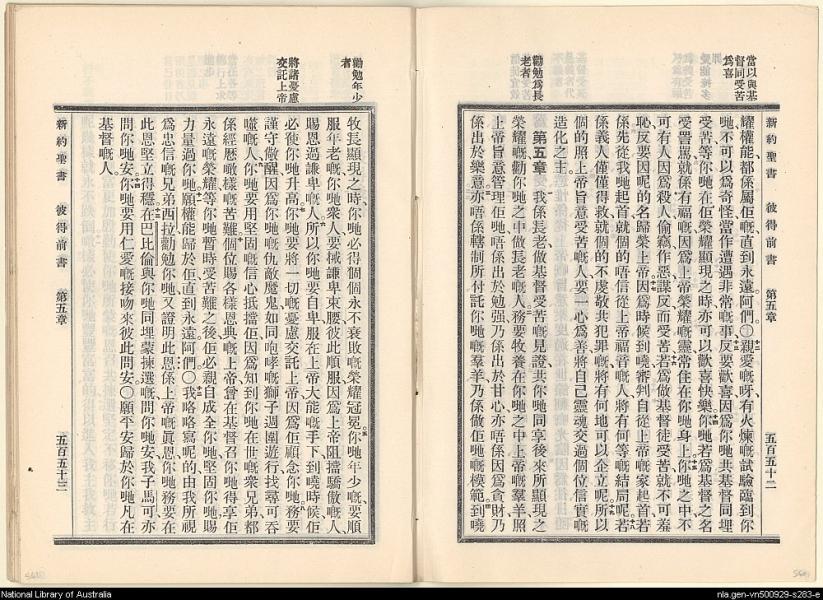 當以與基
督同受苦
爲喜
新約聖書 彼得前書 第五章 五百五十二
耀權能都係屬佢嘅直到永遠阿們〇親愛嘅呀有火煉嘅試驗臨到你
哋不可以爲奇怪當作遭遇非常嘅事反要歡喜因爲你哋共基督同埋
受苦等你哋在佢榮耀顯現之時亦可以歡喜快樂你哋若爲基督之名
受詈罵就係有福嘅因爲上帝榮耀嘅靈常住在你哋身上你哋之中不
可有人因爲殺人偷竊作惡謀反而受苦若爲做基督徒受苦就不可羞
恥反要因呢的名歸榮上帝因爲時候到嘵審判自從上帝嘅家起首若
係先從我哋起首就個的唔信從上帝福音嘅人將有何等嘅結局呢若
係義人僅僅得救就個的不虔敬共犯罪嘅將有何地可以企立呢所以
個的照上帝旨意受苦嘅人要一心爲善將自己靈魂交過個位信實嘅
造化之主
勸勉爲長
老者
第五章 我係長老做基督受苦嘅見證共你哋同享後來所顯現之
榮耀嘅勸你哋之中做長老嘅人務要牧養在你哋之中上帝嘅羣羊照
上帝旨意管理佢哋唔係出於勉强乃係出於甘心亦唔係因爲貪財乃
係出於樂意亦唔係轄制所付託你哋嘅羣羊乃係做佢哋嘅模範到嘵
勸勉年少
者
牧長顯現之時你哋必得個個永不衰敗嘅榮耀冠冕你哋年少嘅要順
服年老嘅你哋衆人要械謙卑束腰彼此順服因爲上帝阻擋驕傲嘅人
賜恩過謙卑嘅人所以你哋要自卑服在上帝大能嘅手下到嘵時候佢
將諸憂慮
交託上帝
必使你哋升高你哋要將一切嘅憂慮交託上帝因爲佢顧念你哋務要
謹守儆醒因爲你哋嘅仇敵魔鬼如同咆哮嘅獅子週圍遊行找尋可吞
嚥嘅人你哋要用堅固嘅信心抵擋佢因爲知到你哋在世嘅衆兄弟都
係經歷噉樣嘅苦難個位賜各樣恩典嘅上帝曾在基督召你哋得享佢
永遠嘅榮耀等你哋暫時受苦難之後佢必親自成全你哋堅固你哋賜
力量過你哋願權能歸於佢直到永遠阿們〇我畧畧寫呢的由我所視
爲忠信嘅兄弟西拉勸勉你哋又證明此恩係上帝嘅眞恩你哋務要在
此恩堅立得穩在巴比倫與你哋同埋蒙揀選嘅問你哋安我子馬可亦
問你哋安你哋要用仁愛嘅接吻來彼此問安〇願平安歸於你哋凡在
基督嘅人
新約聖書 彼得前書 第五章 五百五十三
National Library of Australia
nla.gen-vn500929-s283-e